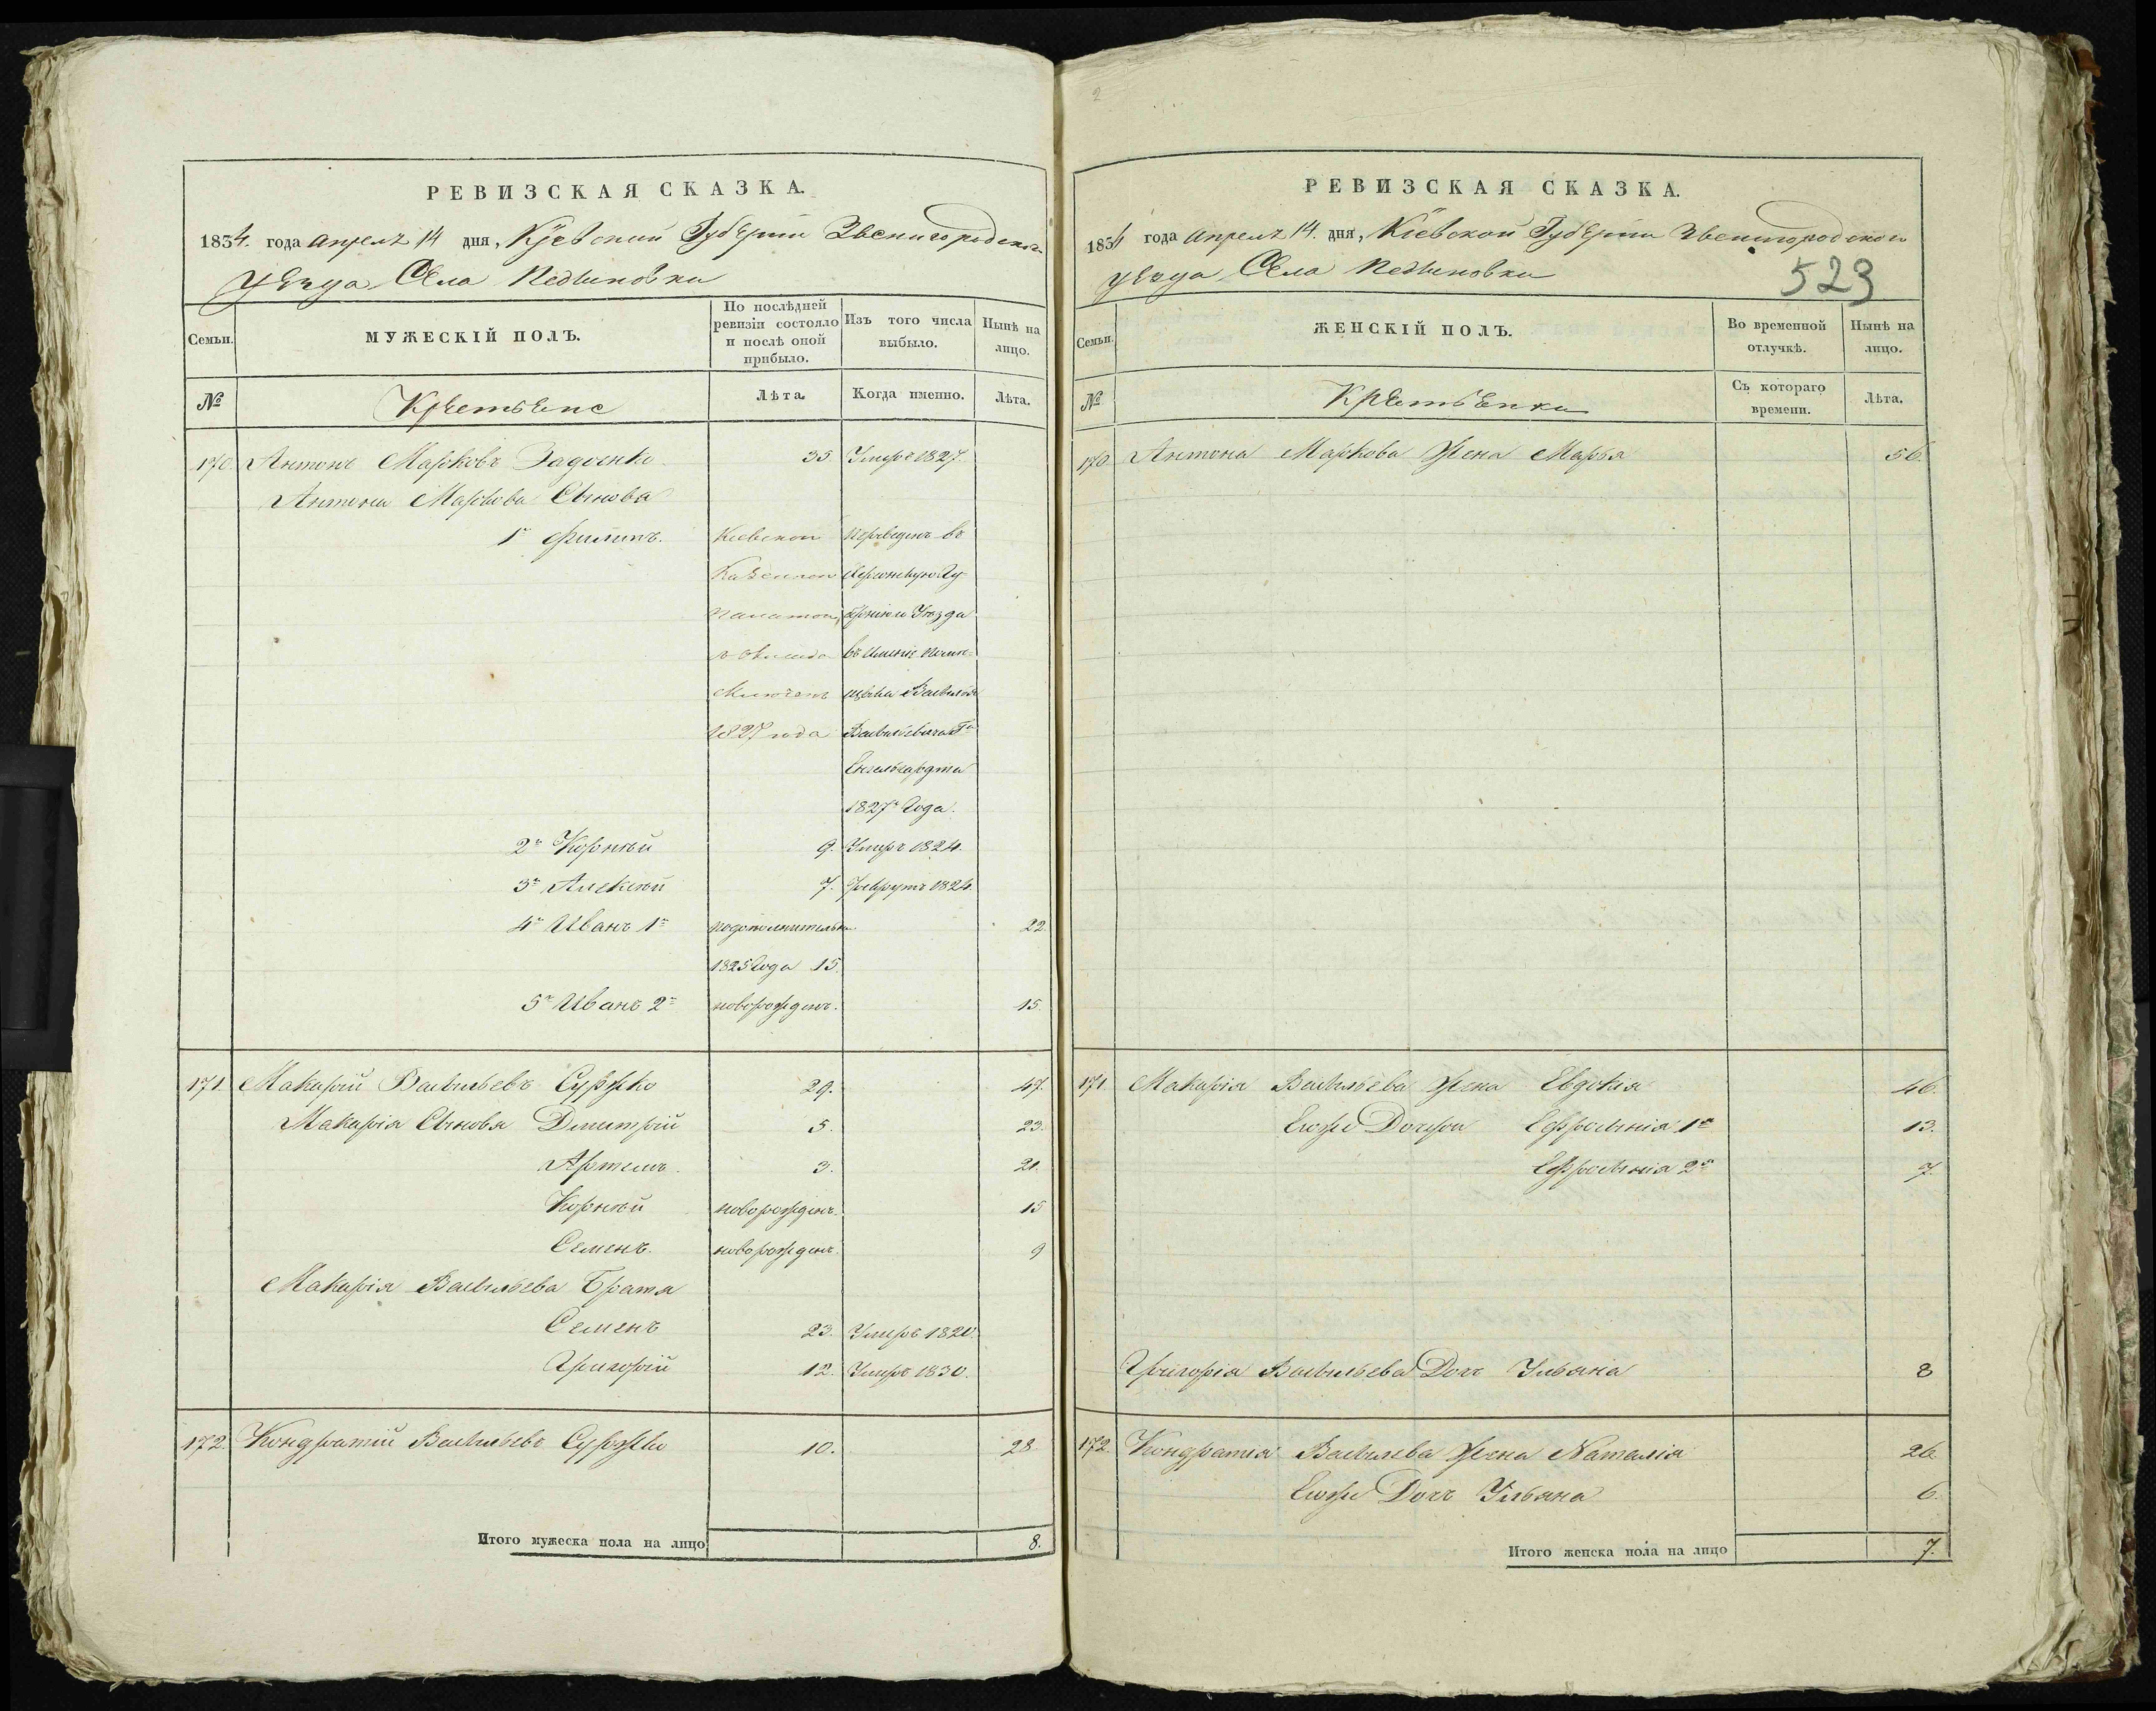 РЕВИЗСКАЯ СКАЗКА.
1834. года Апреля 14 дня, Кіевской Губерніи Звенигородскаго
уезда Села Пединовки
Семьи.
МУЖЕСКІЙ ПОЛЪ.
По послѣдней ревизіи состояло и послѣ оной прибыло.
Изъ того числа выбыло.
Нынѣ на лицо.
№
Крестьяне
Лѣта.
Когда именно.
Лѣта.
170. Антонъ Марковъ 35. Умеръ 1827.
Антона Маркова Сынова
1й Филипъ. Кіевской Переведенъ въ
Казенной Херсонскую Гу-
Палатою бернію и Уезда
въ Именіе Поме-
щика Василія
1827 года Васильевича Гна
Енгельгардта
1827го Года.
2й Корнѣй 9. Умеръ 1824.
3й Алексѣй 7. Рекрутъ 1824.
4й Иванъ 1й подополнительной 22.
1825 Года 15.
5й Иванъ 2й новорожденъ. 15.
171. Макарій Васильевъ Суржко 29. 47.
Макарія Сыновя Дмитрій 5. 23.
Артемъ. 3. 21.
Корнѣй новорожденъ. 15
Семенъ. новорожденъ. 9
Макарія Васильева Братя
Семенъ 23. Умеръ 1820.
Григорій 12. Умеръ 1830.
172. Кондратій Васильевъ Суржко 10. 28.
Итого мужеска пола на лицо 8.
2
РЕВИЗСКАЯ СКАЗКА.
1834 года Апреля 14. дня, Кіевской Губерніи Звенигородскаго
уезда Села Пединовки
523
Семьи.
ЖЕНСКІЙ ПОЛЪ.
Во временной отлучкѣ.
Нынѣ на лицо.
№
Крестьянки
Съ котораго времени.
Лѣта.
170 Антона Маркова Жена Марья 56.
171 Макарія Васильева Жена Евдокія 46.
Егоже Дочери Ефросинія 1я 13.
Ефросинія 2я 7.
Григорія Васильева Дочь Ульяна 8
172. Кондратія Васильева Жена Наталія 26.
Егоже Дочь Ульяна 6.
Итого женска пола на лицо 7.